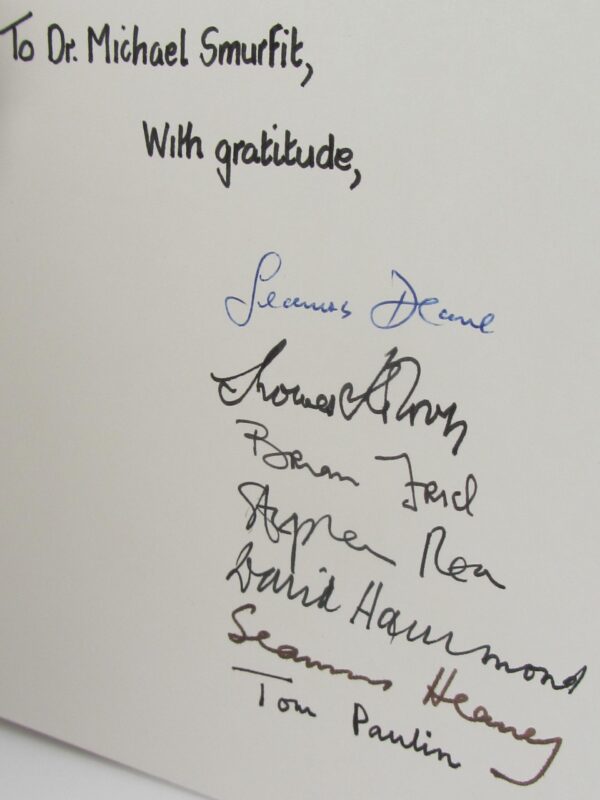 To Dr. Michael Smurfit,
With gratitude,
Seamus Deane
Thomas Kilroy
Brian Friel
Stephen Rea
David Hammond
Seamus Heaney
Tom Paulin